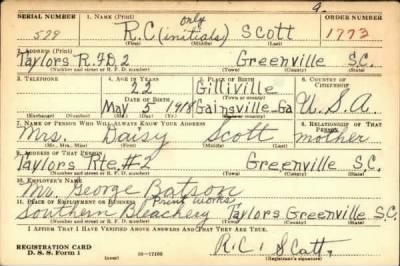 SERIAL NUMBER 1. NAME (Print) ORDER NUMBER
529 R.C (initials) only Scott 1773
(First) (Middle) (Last)
2. ADDRESS (Print)
Taylors R.F.D. 2 Greenville S.C.
(Number and street or R. F. D. number) (Town) (County) (State)
3. TELEPHONE 4. AGE IN YEARS 5. PLACE OF BIRTH 6. COUNTRY OF CITIZENSHIP
22 Gilliville
DATE OF BIRTH
May 5 1918 Gainsville Ga U.S.A.
(Exchange) (Number) (Mo.) (Day) (Yr.) (Town or county) (State or country)
7. NAME OF PERSON WHO WILL ALWAYS KNOW YOUR ADDRESS 8. RELATIONSHIP OF THAT PERSON
Mrs. Daisy Scott mother
(Mr., Mrs., Miss) (First) (Middle) (Last)
9. ADDRESS OF THAT PERSON
Taylors Rte. #2 Greenville S.C.
(Number and street or R. F. D. number) (Town) (County) (State)
10. EMPLOYER'S NAME
Mr. George Batson
11. PLACE OF EMPLOYMENT OR BUSINESS Print Works
Southern Bleachery Taylors Greenville S.C.
(Number and street or R. F. D. number) (Town) (County) (State)
I AFFIRM THAT I HAVE VERIFIED ABOVE ANSWERS AND THAT THEY ARE TRUE.
REGISTRATION CARD R.C. Scott.
D. S. S. Form 1 16-17105 (Registrant's signature)